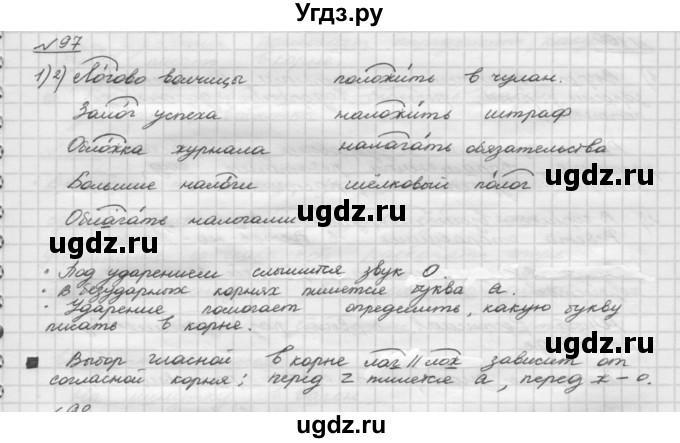 Угдз.ру
№ 97
1)2) Логово волчицы положить в чулан.
Залог успеха наложить штраф
Обложка журнала налагать обязательства
Большие налоги шёлковый полог
Облагать налогами
ugdz.ru ugdz.ru ugdz.ru
• Под ударением слышится звук О.
• В безударных корнях пишется буква а.
• Ударение помогает определить, какую букву
писать в корне.
Выбор гласной в корне лаг//лож зависит от
согласной корня; перед г пишется а, перед ж – о.
98
ugdz.ru ugdz.ru